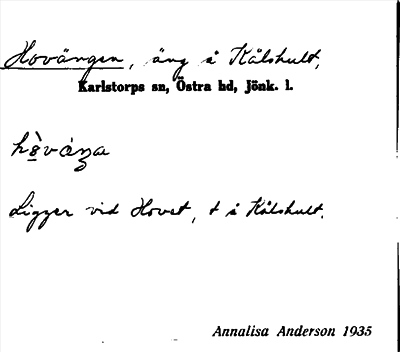 Hovängen, äng å Kålshult,
Karlstorps sn, Östra hd, Jönk. l.
Ligger vid Hovet, t å Kålshult.
Annalisa Anderson 1935